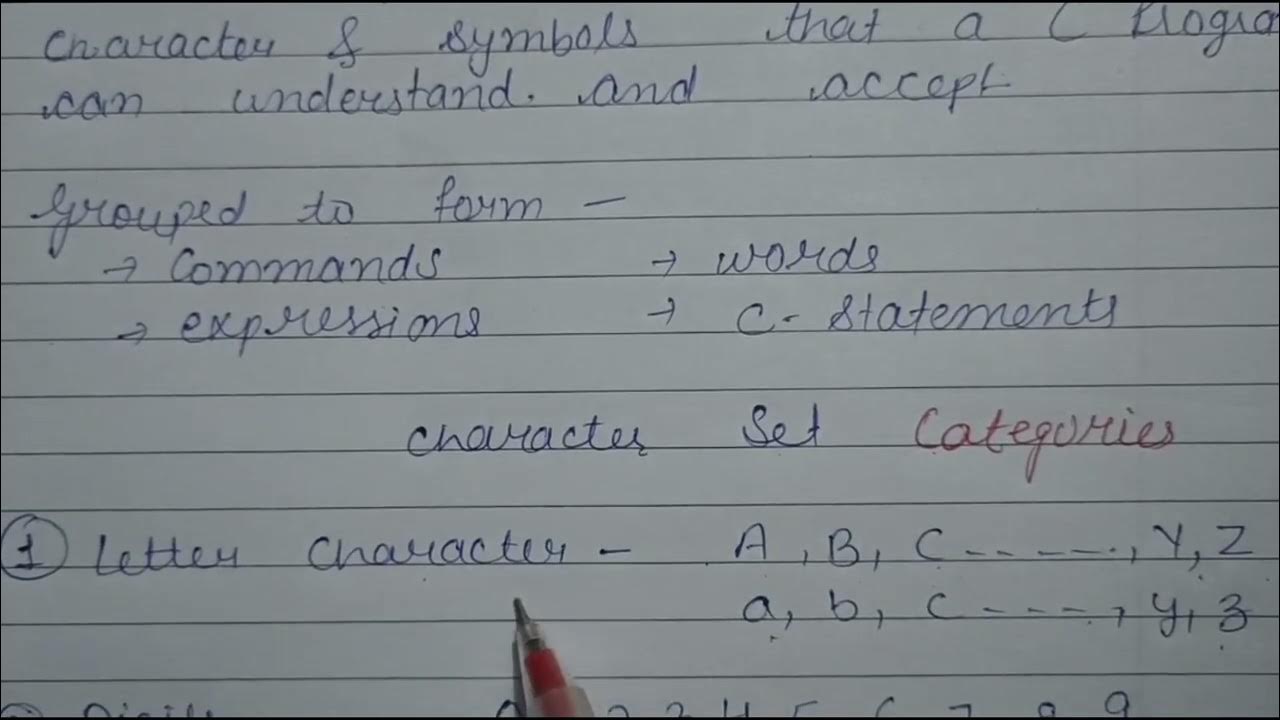 character & symbols that a C
can understand. and accept
Grouped to form –
→ Commands → words
→ expressions → C- Statements
character Set Categories
1 Letter Character – A, B, C ------, Y, Z
a, b, c ----, y, z